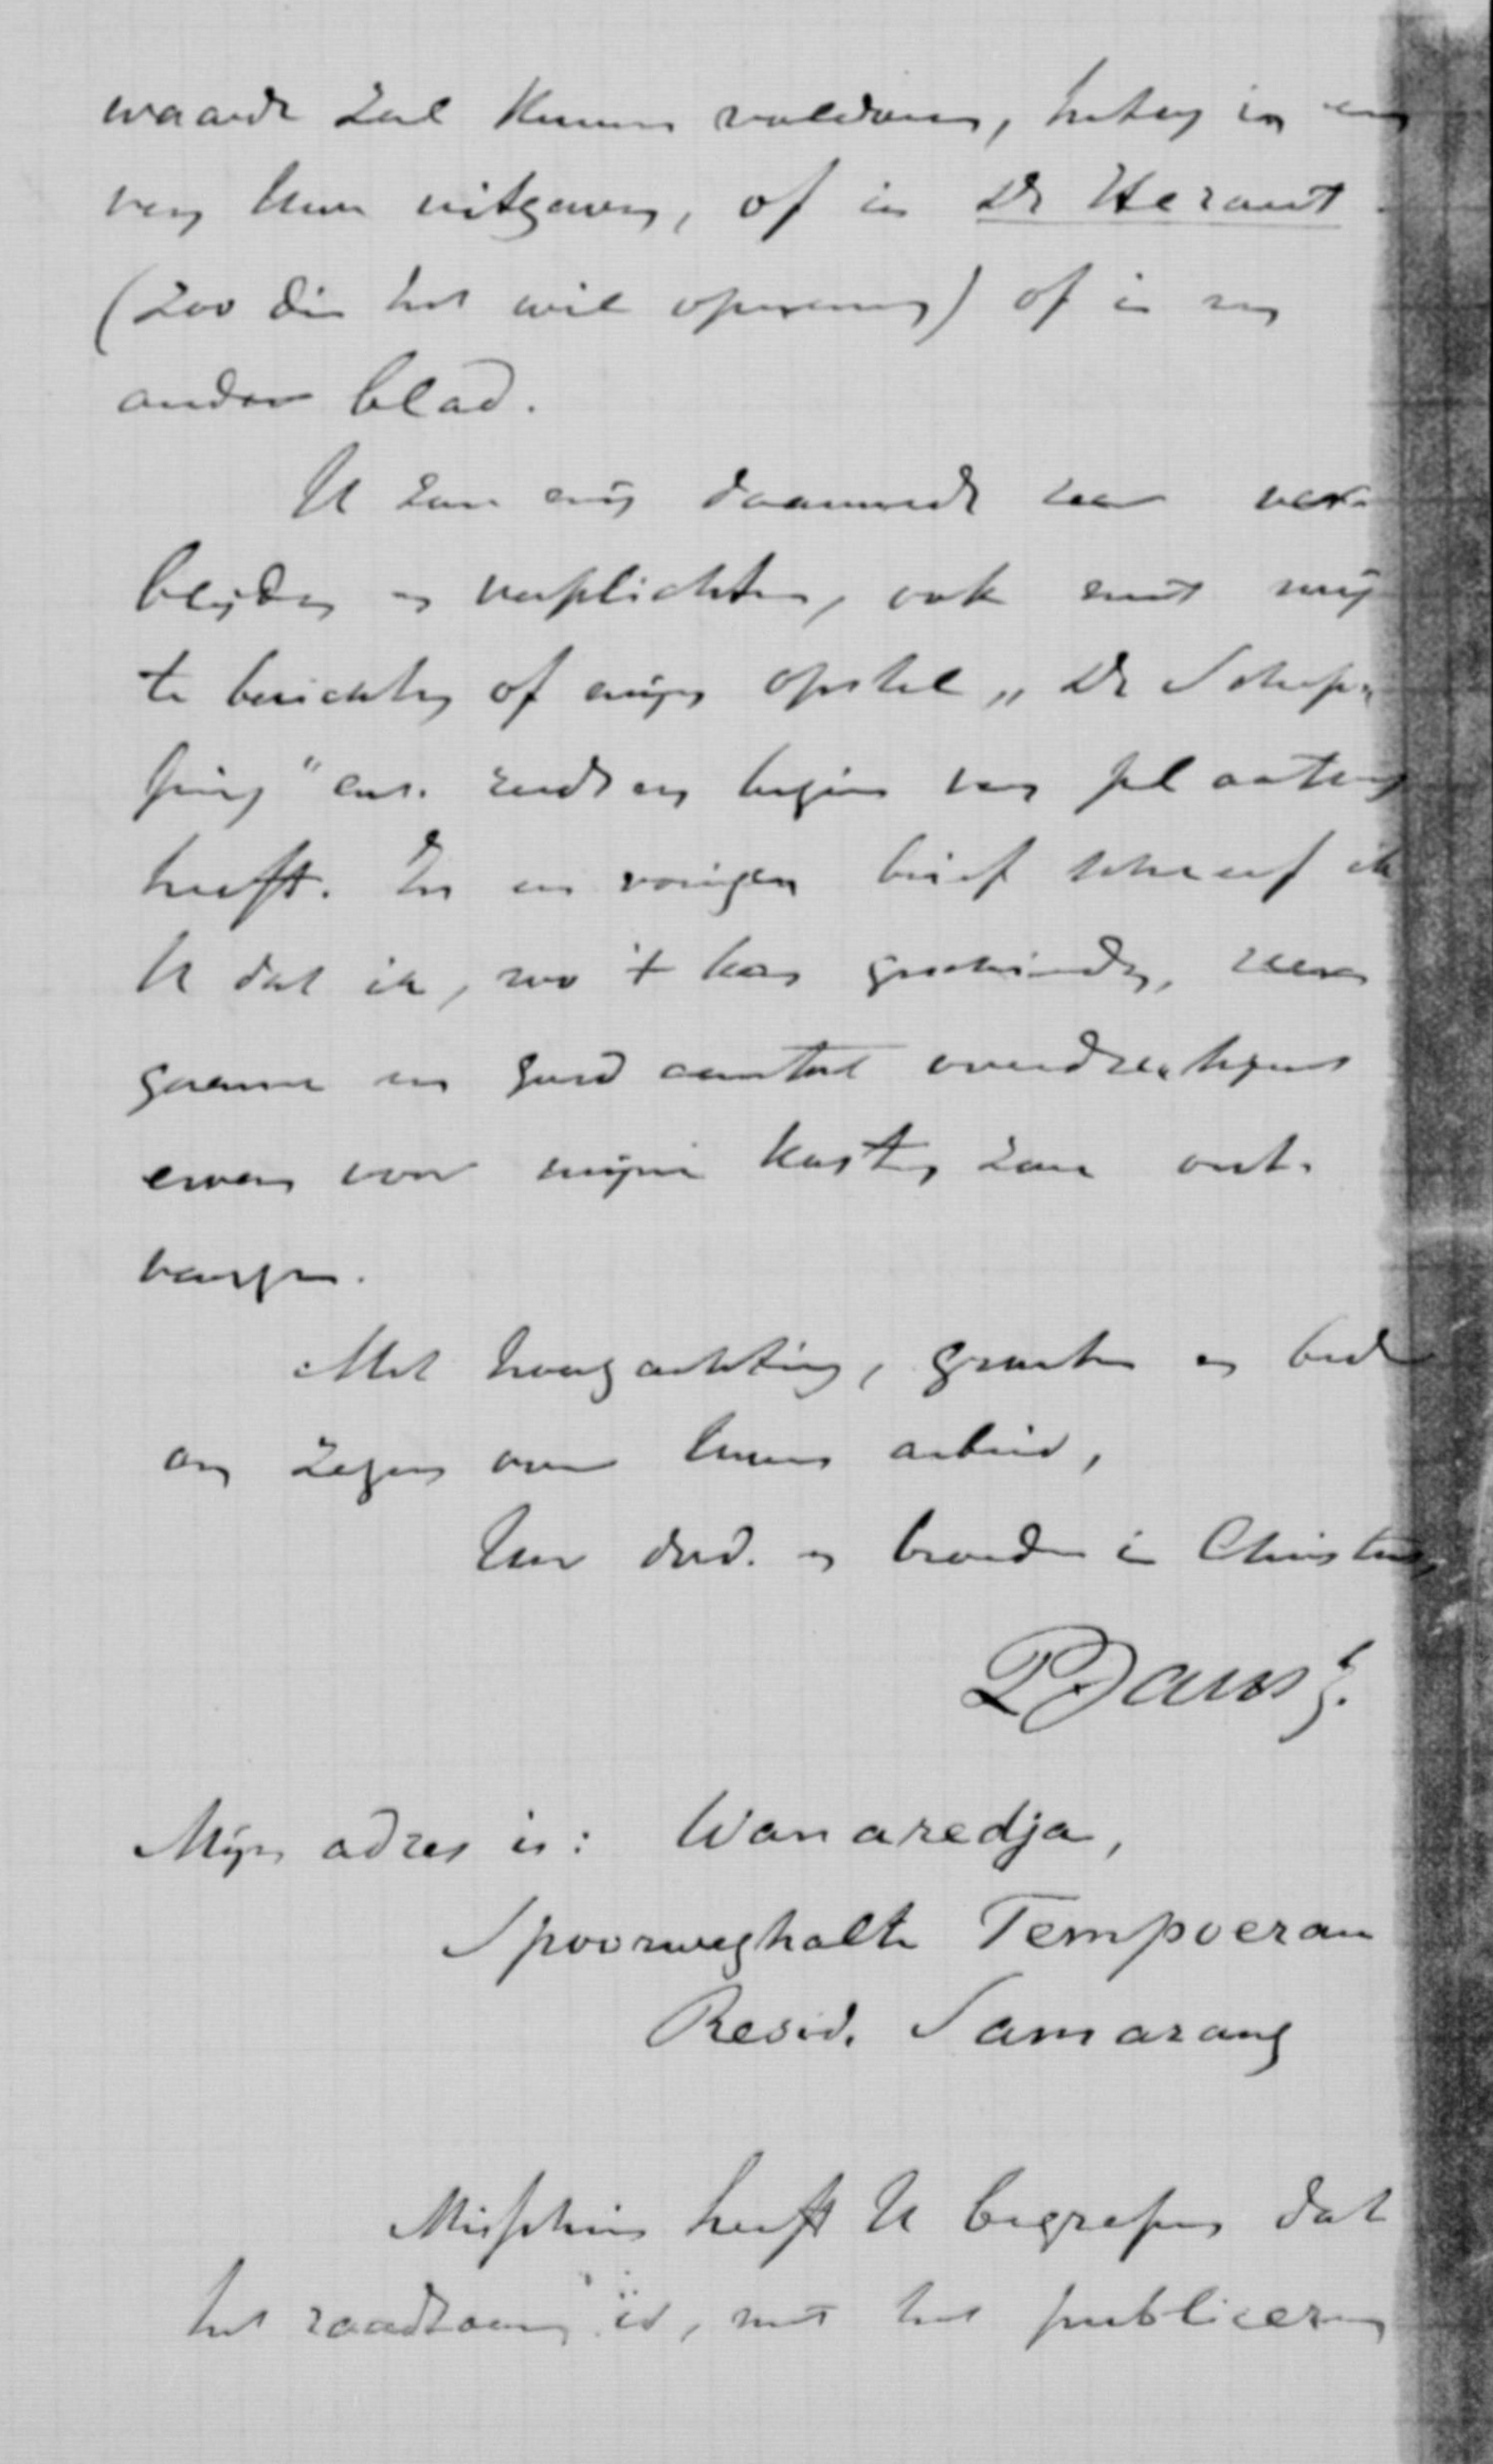 waarde zal kunnen voldoen, hetzij in een
van Uwe uitgaven, of in De Heraut
(zoo die het wil opnemen) of in een
ander blad.
U zou mij daarmede zeer ver-
blijden en verplichten, ook met mij
te berichten of mijn opstel „De Schep-
ping" enz. reeds een begin van plaatsing
heeft. In een vorigen brief schreef ik
U dat ik, zoo 't kan geschieden, zeer
gaarne een goed aantal overdrukken
ervan voor mijne kosten zou ont-
vangen.
Met hoogachting, groeten en bede
om zegen over Uwen arbeid,
Uw dwd. en broeder in Christus,
P Jansz.
Mijn adres is: Wanaredja,
Spoorweghalte Tempoeran
Resid. Samarang
Misschien heeft U begrepen dat
het raadzaam is, met het publiceren